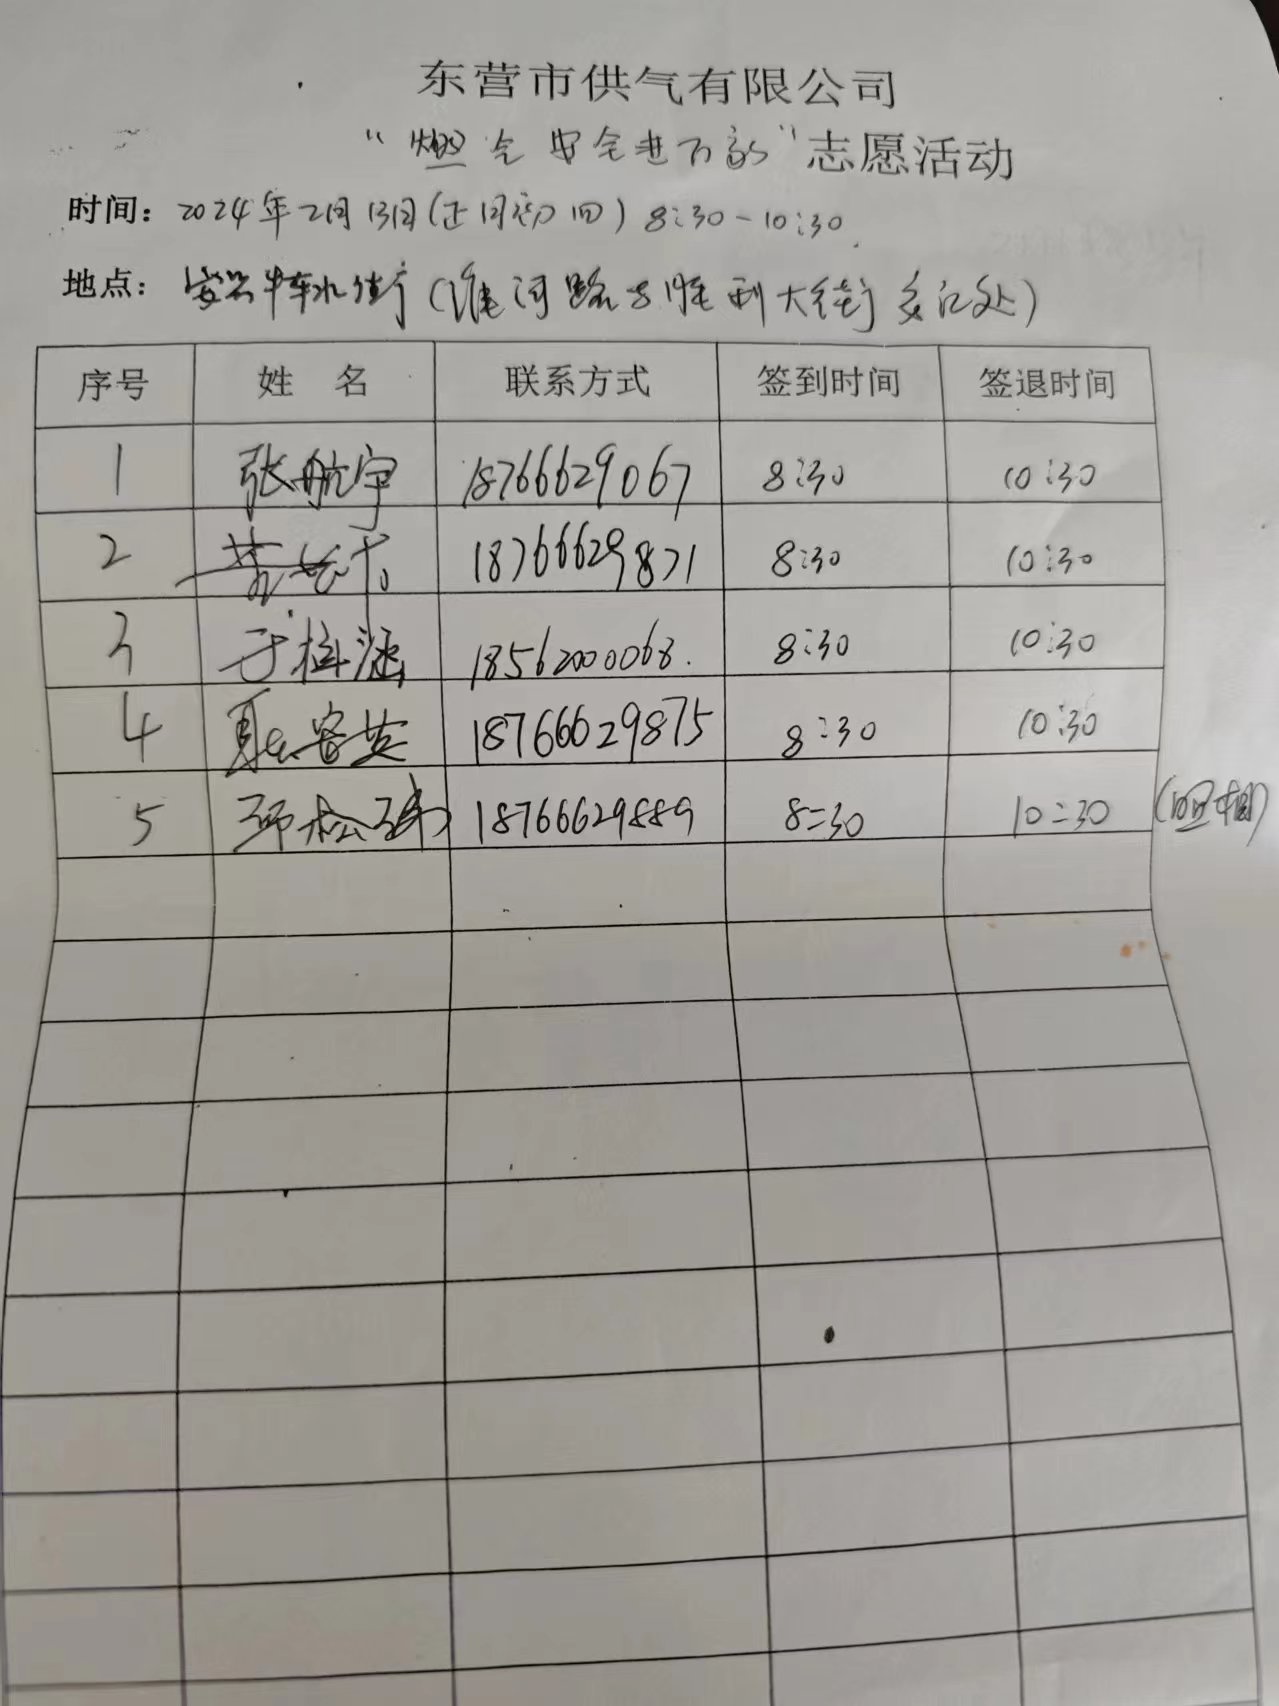 东营市供气有限公司
“燃气安全进万家”志愿活动
时间：2024年2月13日(正月初四) 8:30-10:30
地点：车水街(淮河路与胜利大街交汇处)
序号 姓 名 联系方式 签到时间 签退时间
1 张航宇 18766629067 8:30 10:30
2 18766629871 8:30 10:30
3 于梓涵 18562000068. 8:30 10:30
4 18766629875 8:30 10:30
5 18766629889 8:30 10:30